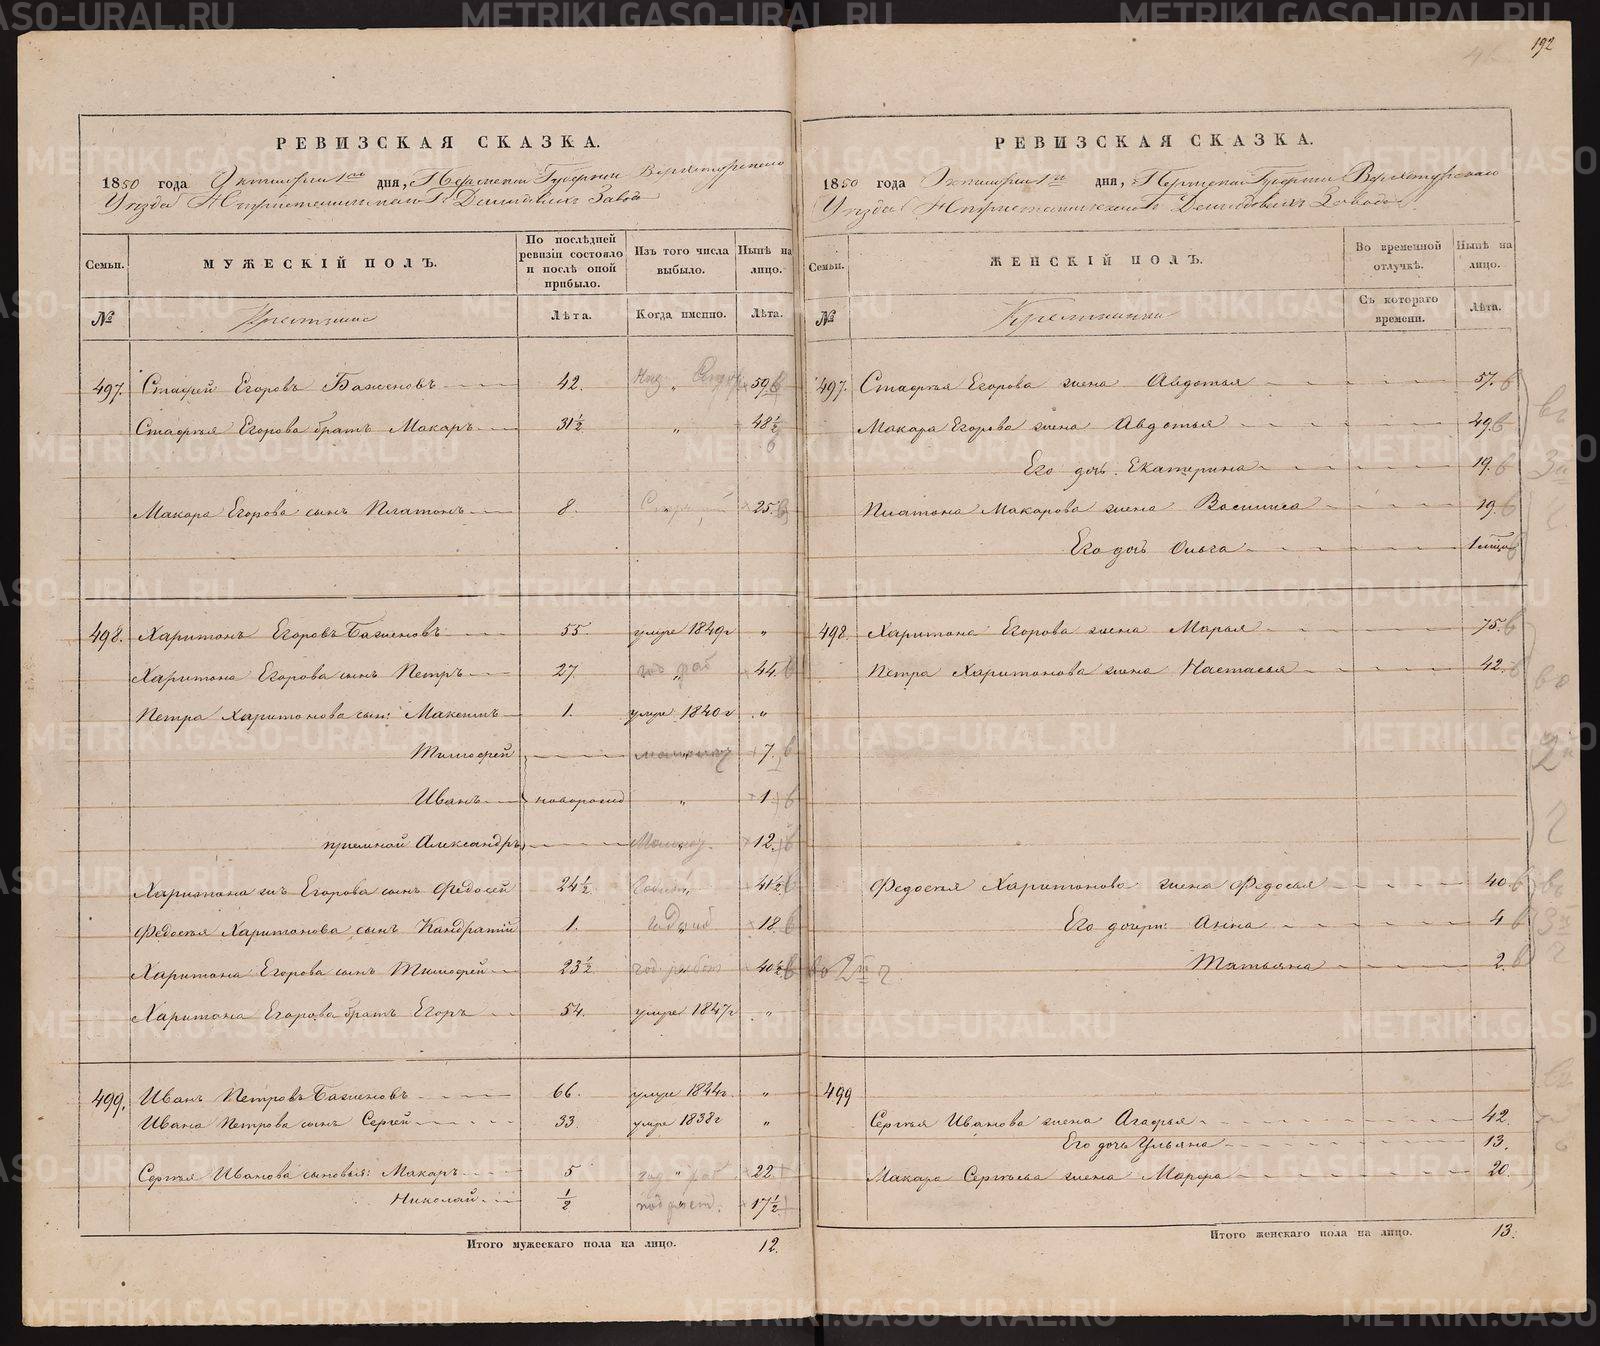 192
РЕВИЗСКАЯ СКАЗКА.
1850 года Октября 1го дня, Пермской Губернии Верхотурского
Уезда Нижнетагильского Гг. Демидовых Завода
Семьи.
МУЖЕСКІЙ ПОЛЪ.
По послѣдней ревизіи состояло и послѣ оной прибыло.
Изъ того числа выбыло.
Нынѣ на лицо.
№
Лѣта.
Когда именно.
Лѣта.
497. Стафей Егоровъ Баженовъ 42. 59
Стафѣя Егорова братъ Макаръ 31½ „ 48½
Макара Егорова сынъ Платонъ 8. 25.
498. Харитонъ Егоровъ Баженовъ 55 умре 1849г „
Харитона Егорова сынъ Петръ 27. 44.
Петра Харитонова сын: Максимъ 1. умре 1840г „
Тимофей 7.
Иванъ новорожд „ 1.
приемной Александръ 12.
Харитона Егорова сынъ Федосей 24½ 41½
Федосѣя Харитонова сынъ Кандратий 1. 18.
Харитона Егорова сынъ Тимофей 23½ 40½
Харитона Егорова братъ Егоръ 54. умре 1847г „
499. Иванъ Петровъ Баженовъ 66. умре 1844г. „
Ивана Петрова сынъ Сергей 33. умре 1838г „
Сергѣя Иванова сыновья: Макаръ 5 „ 22
Николай ½ 17½
Итого мужескаго пола на лицо. 12.
РЕВИЗСКАЯ СКАЗКА.
1850 года Октября 1го дня, Пермской Губернии Верхотурского
Уезда Нижнетагильского Гг. Демидовыхъ Завода
Семьи.
ЖЕНСКІЙ ПОЛЪ.
Во временной отлучкѣ.
Нынѣ на лицо.
№
Съ котораго времени.
Лѣта.
497. Стафѣя Егорова жена Авдотья 57.
Макара Егорова жена Авдотья 49
Его дочь Екатерина 19.
Платона Макарова жена Василиса 19.
Его дочь Ольга 1 мѣсяца
498. Харитона Егорова жена Марья 75.
Петра Харитонова жена Настасья 42.
Федосѣя Харитонова жена Федосья 40.
Его дочери: Анна 4
Татьяна 2.
499
Сергѣя Иванова жена Агафья 42.
Его дочь Ульяна 13.
Макара Сергѣева жена Марфа 20.
Итого женскаго пола на лицо. 13.
METRIKI.GASO-URAL.RU